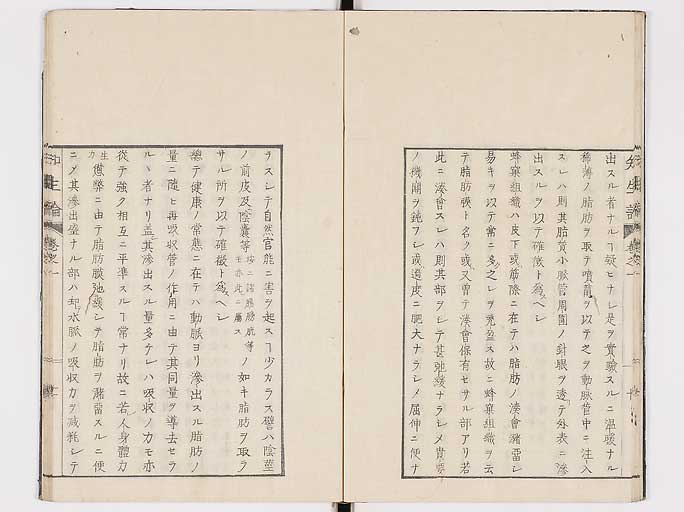 出スル者ナルヿ疑ヒナレ是ヲ實驗スルニ温暖ナル
稀薄ノ脂肪ヲ取テ噴龍ヲ以テ之ヲ動脈管中ニ注入
スレハ則其脂質小脈管周圍ノ針眼ヲ透テ外表ニ滲
出スルヲ以テ確徴ト為スヘシ
蜂窠組織ハ皮下或筋隙ニ在テハ脂肪ノ湊會瀦畱シ
易キヲ以テ常ニ多ク之レヲ充盈ス故ニ蜂窠組織ヲ云
テ脂肪膜ト名ク或又曽テ湊會保有セサル部アリ若
此ニ湊會スレハ則其部ヲシテ甚弛緩ナラシメ貴要
ノ機関ヲ鈍フシ或邉皮ニ肥大ナラシメ屈伸ニ便ナ
ヲスレテ自然官能ニ害ヲ起スヿ少カラス譬ハ陰莖
ノ前皮及陰嚢等 按ニ諸膀胱等モ亦此ニ屬ス ノ如キ脂肪ヲ取ラ
サル所ヲ以テ確徴ト為スヘシ
總テ健康ノ常態ニ在テハ動脈ヨリ滲出スル脂肪ノ
量ニ随ヒ再吸収管ノ作用ニ由テ其同量ヲ導去セラ
ルヽ者ナリ盖其滲出スル量多ケレハ吸収ノ力モ亦
從テ強ク相互ニ平準スルヿ常ナリ故ニ若人身體力
生力
憊弊ニ由テ脂肪膜弛緩シテ脂肪ヲ瀦畱スルニ便
ニノ其滲出盛ナル部ハ却水脈ノ吸収力ヲ減耗シテ
知生論 巻之一